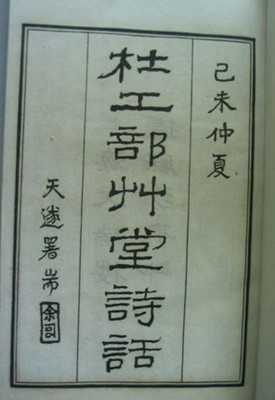 己未仲夏
杜工部艸堂詩話
天遂署耑